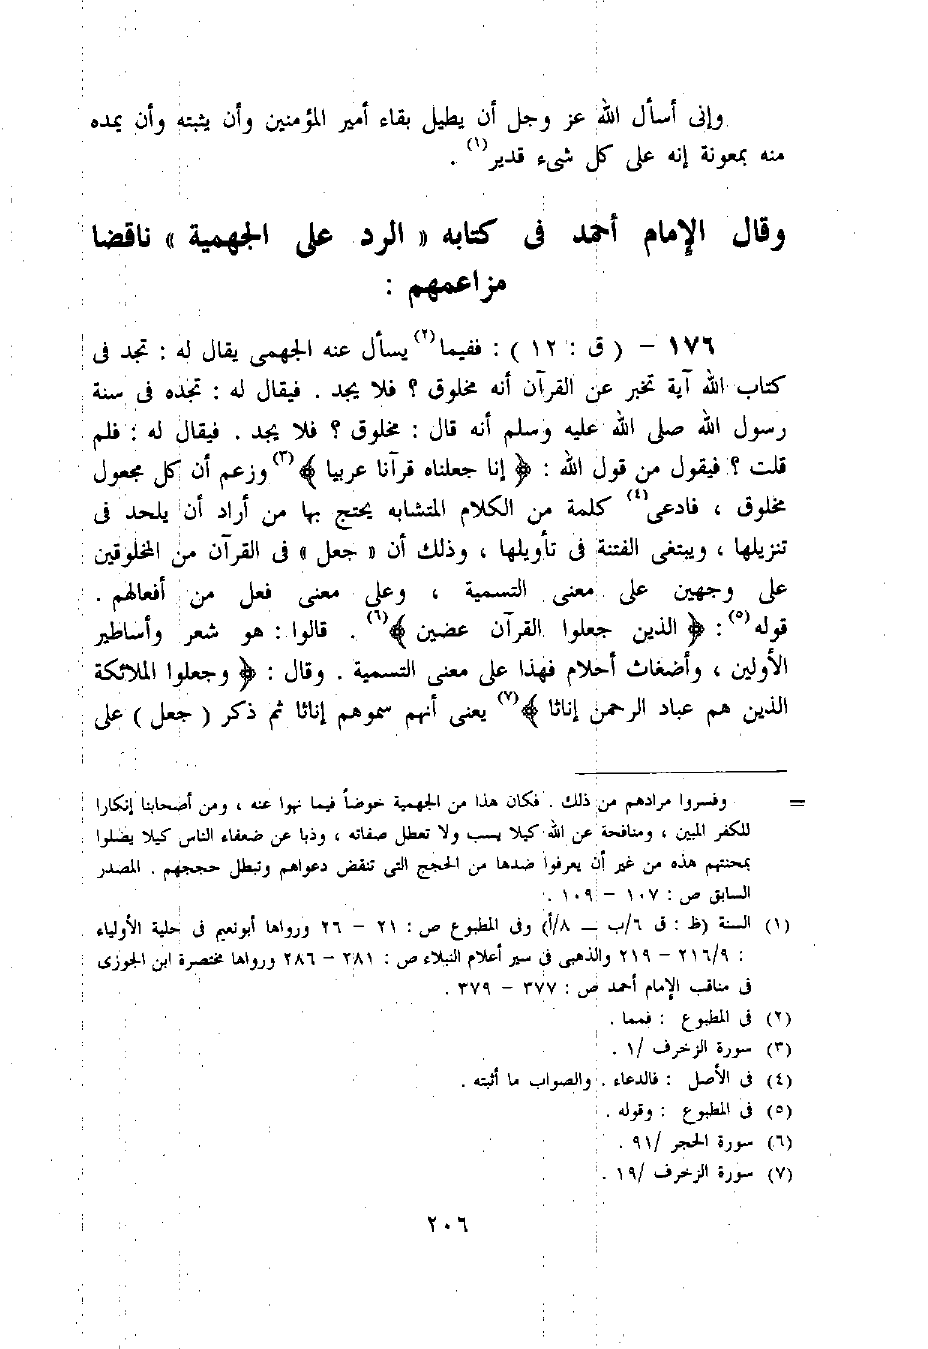 وإنى أسأل الله عز وجل أن يطيل بقاء أمير المؤمنين وأن يثبته وأن يمده
منه بمعونة إنه على كل شىء قدير(١) .
وقال الإمام أحمد فى كتابه « الرد على الجهمية » ناقضا
مزاعمهم :
١٧٦ – ( ق : ١٢ ) : ففيما(٢) يسأل عنه الجهمى يقال له : تجد فى
كتاب الله آية تخبر عن القرآن أنه مخلوق ؟ فلا يجد . فيقال له : تجده فى سنة
رسول الله صلى الله عليه وسلم أنه قال : مخلوق ؟ فلا يجد . فيقال له : فلم
قلت ؟ فيقول من قول الله : ﴿ إنا جعلناه قرآنا عربيا ﴾(٣) وزعم أن كل مجعول
مخلوق ، فادعى(٤) كلمة من الكلام المتشابه يحتج بها من أراد أن يلحد فى
تنزيلها ، ويبتغى الفتنة فى تأويلها ، وذلك أن « جعل » فى القرآن من المخلوقين
على وجهين على معنى التسمية ، وعلى معنى فعل من أفعالهم .
قوله(٥) : ﴿ الذين جعلوا القرآن عضين ﴾(٦) . قالوا : هو شعر وأساطير
الأولين ، وأضغاث أحلام فهذا على معنى التسمية . وقال : ﴿ وجعلوا الملائكة
الذين هم عباد الرحمن إناثا ﴾(٧) يعنى أنهم سموهم إناثا ثم ذكر ( جعل ) على
= وفسروا مرادهم من ذلك . فكان هذا من الجهمية خوضاً فيما نهوا عنه ، ومن أصحابنا إنكارا
للكفر المبين ، ومنافحة عن الله كيلا يسب ولا تعطل صفاته ، وذبا عن ضعفاء الناس كيلا يضلوا
بمحنتهم هذه من غير أن يعرفوا ضدها من الحجج التى تنقض دعواهم وتبطل حججهم . المصدر
السابق ص : ١٠٧ – ١٠٩ .
(١) السنة (ظ : ق ٦/ب ــ ٨/أ) وفى المطبوع ص : ٢١ – ٢٦ ورواها أبونعيم فى حلية الأولياء
: ٢١٦/٩ – ٢١٩ والذهبى فى سير أعلام النبلاء ص : ٢٨١ – ٢٨٦ ورواها مختصرة ابن الجوزى
فى مناقب الإمام أحمد ص : ٣٧٧ – ٣٧٩ .
(٢) فى المطبوع : فمما .
(٣) سورة الزخرف /١ .
(٤) فى الأصل : فالدعاء . والصواب ما أثبته .
(٥) فى المطبوع : وقوله .
(٦) سورة الحجر /٩١ .
(٧) سورة الزخرف /١٩ .
٢٠٦